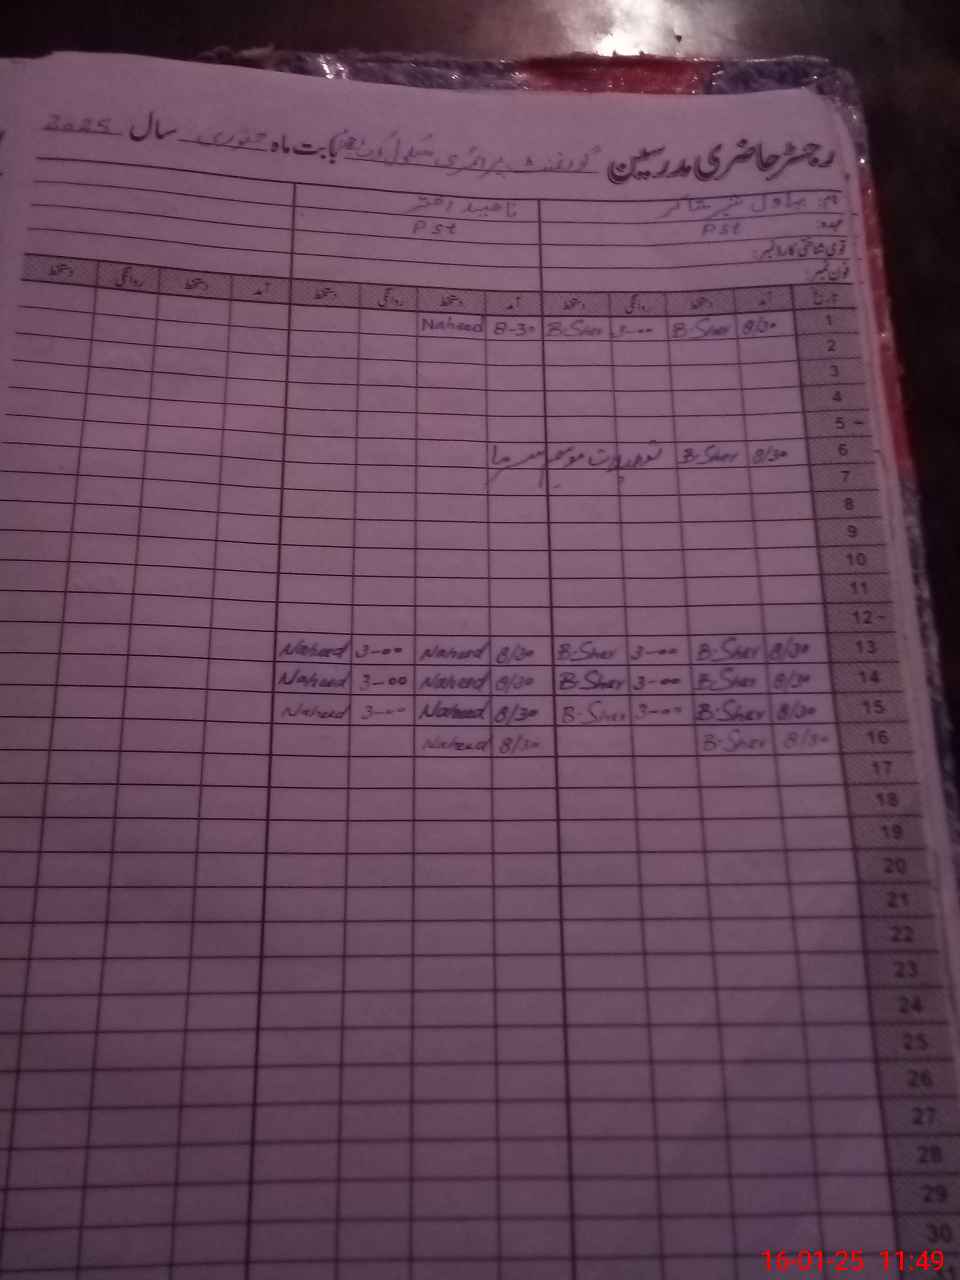 رجسٹر حاضری مدرسین گورنمنٹ پرائمری سکول بابت ماہ جنوری سال 2025
نام: شیر ناھید اختر
عہدہ: Pst Pst
قومی شناختی کارڈ نمبر:
فون نمبر:
تاریخ آمد دستخط روانگی دستخط آمد دستخط روانگی دستخط آمد دستخط روانگی دستخط
1 8/30 B-Sher 3-00 B-Sher 8-30 Naheed
2
3
4
5 -
6 8/30 B-Sher تعطیلات موسم سرما
7
8
9
10
11
12 -
13 8/30 B-Sher 3-00 B-Sher 8/30 Naheed 3-00 Naheed
14 8/30 B-Sher 3-00 B-Sher 8/30 Naheed 3-00 Naheed
15 8/30 B-Sher 3-00 B-Sher 8/30 Naheed 3-00 Naheed
16 8/30 B-Sher 8/30 Naheed
17
18
19
20
21
22
23
24
25
26
27
28
29
30
16-01-25 11:49